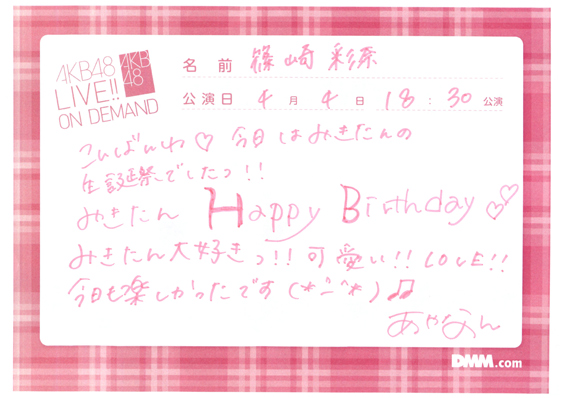 AKB48
LIVE!!
ON DEMAND
AKB
48
名前 篠崎彩奈
公演日 4月4日 18:30 公演
こんばんわ♡ 今日はみきたんの
生誕祭でしたっ!!
みきたん Happy Birthday ♡♡
みきたん大好きっ!! 可愛い!! LOVE!!
今日も楽しかったです(*^-^*)♫
あやなん
DMM.com